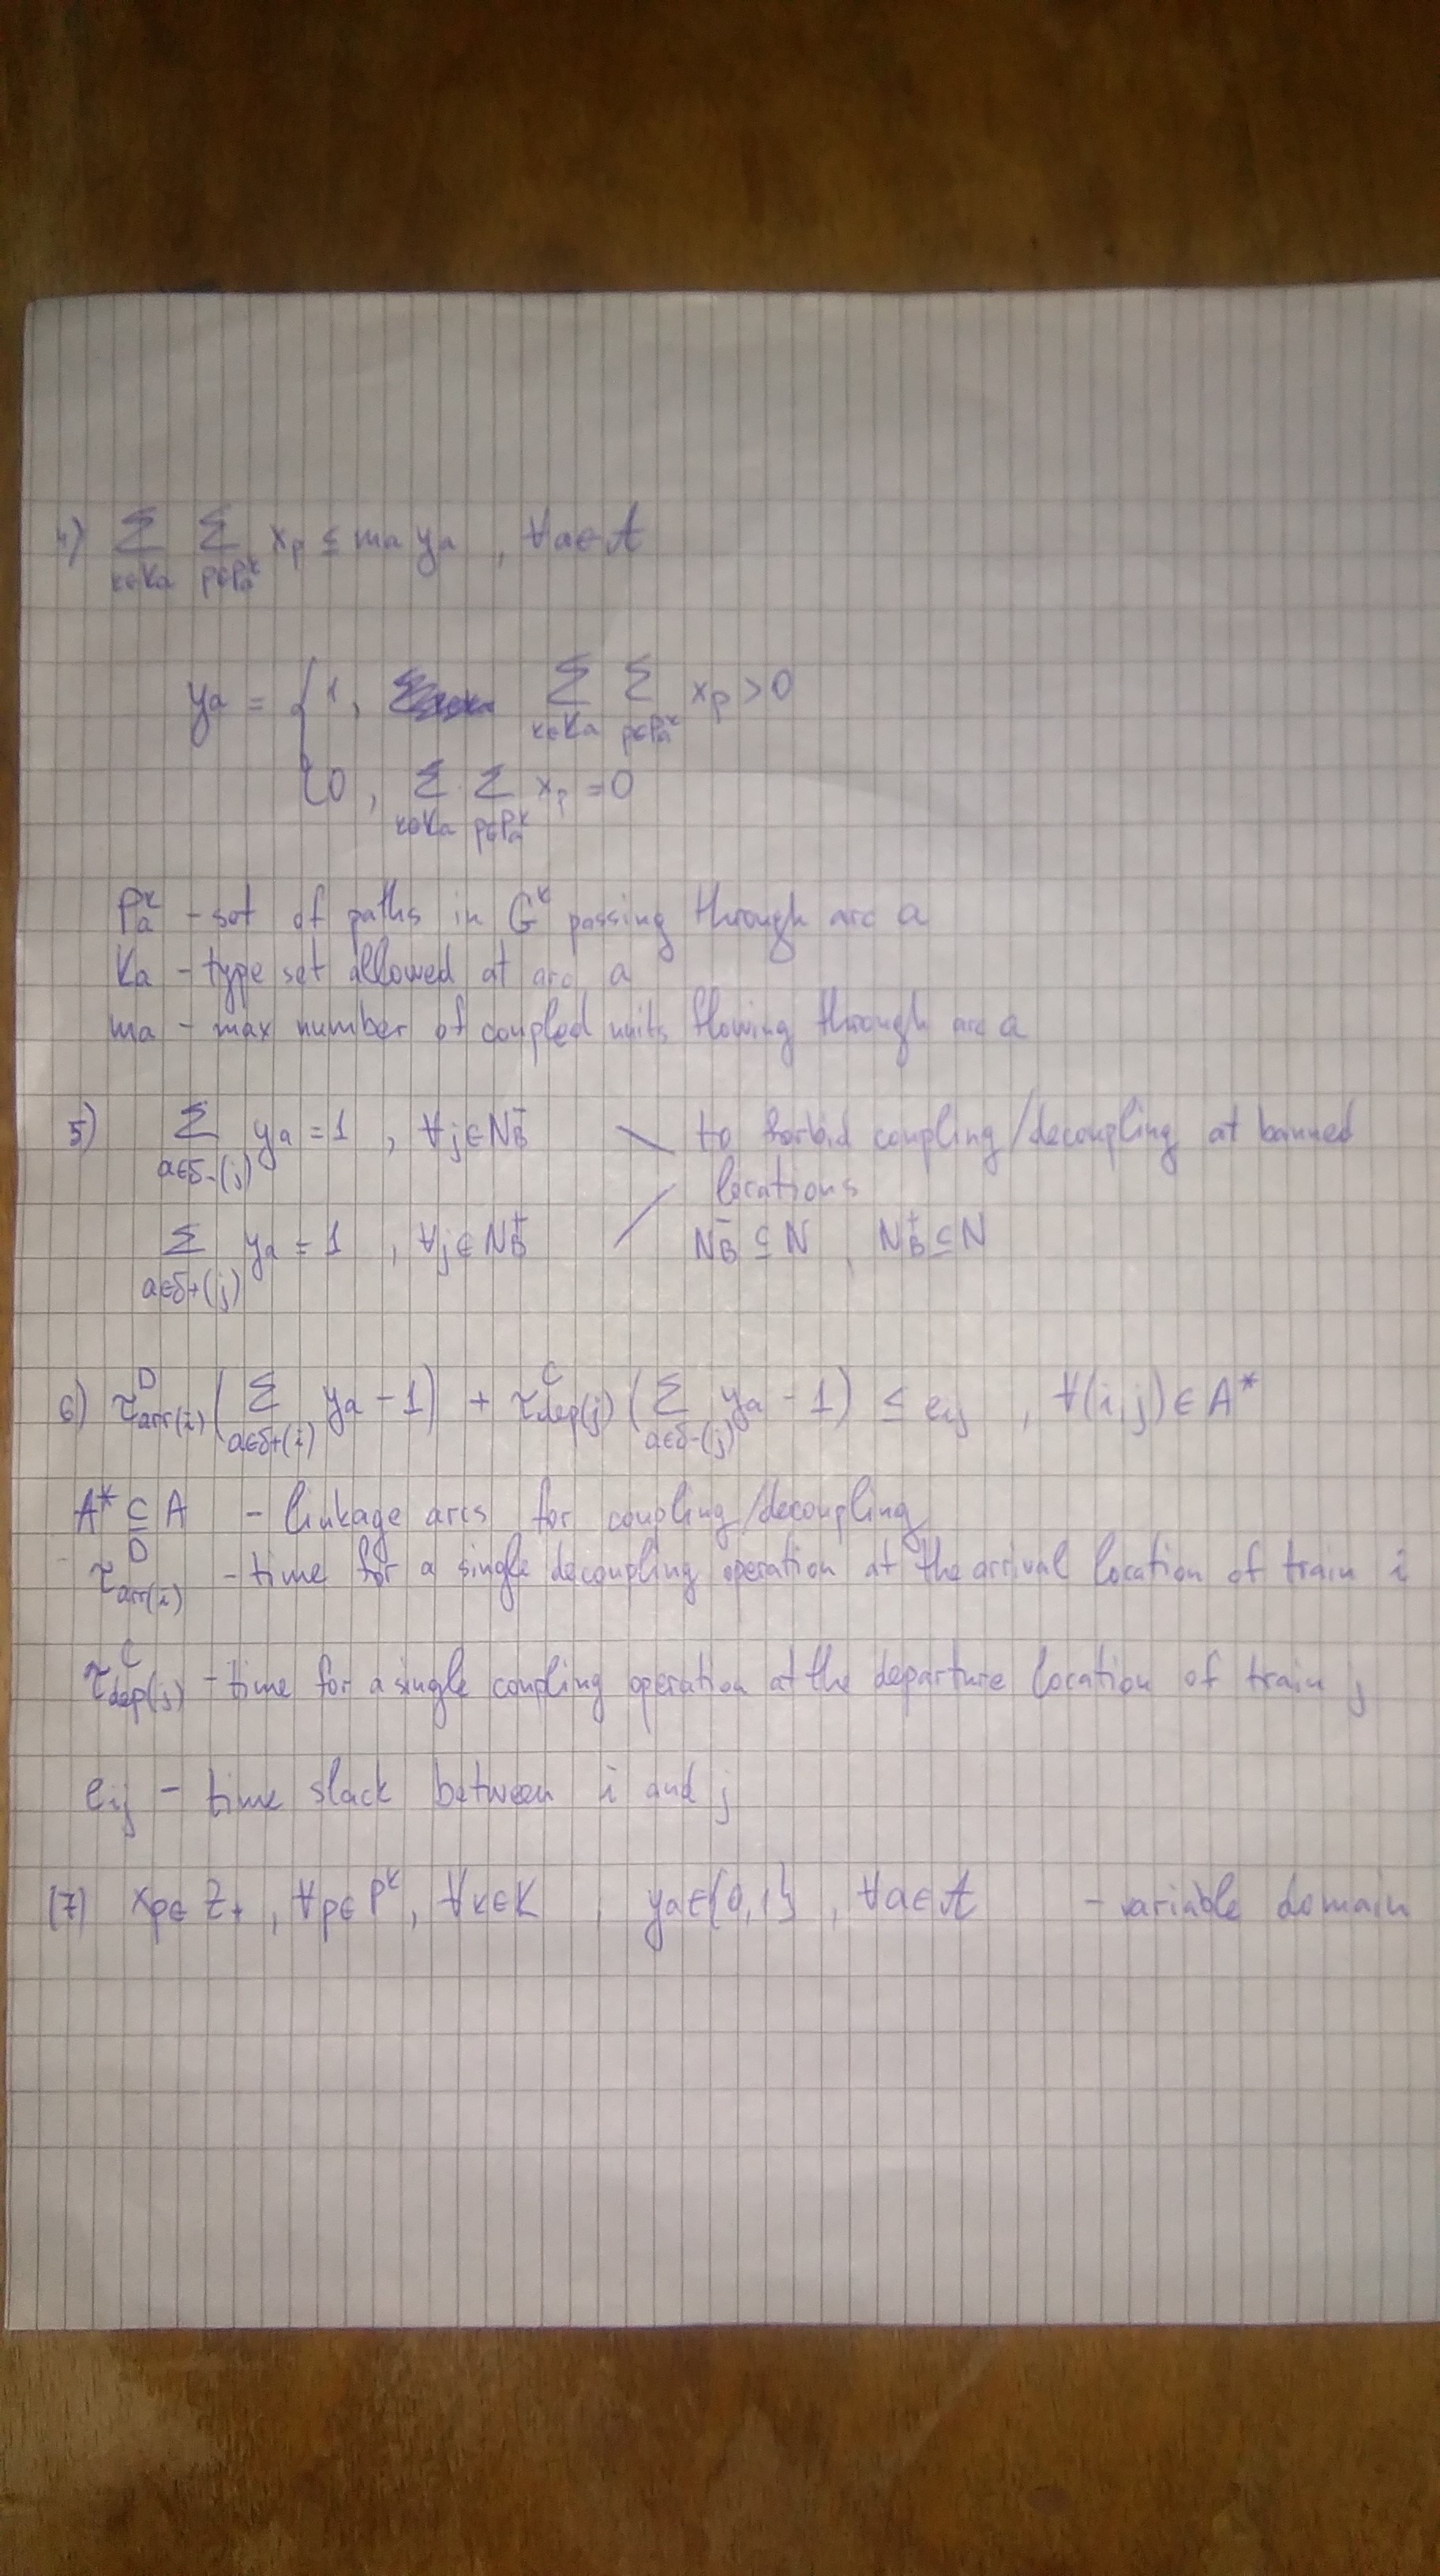 4) Σ_{k∈K_a} Σ_{p∈P_a^k} x_p ≤ m_a y_a , ∀a∈A
y_a = { 1, Σ_{k∈K_a} Σ_{p∈P_a^k} x_p > 0
0, Σ_{k∈K_a} Σ_{p∈P_a^k} x_p = 0
P_a^k - set of paths in G^k passing through arc a
K_a - type set allowed at arc a
m_a - max number of coupled units flowing through arc a
5) Σ_{a∈δ-(j)} y_a = 1 , ∀j∈N_B^- to forbid coupling/decoupling at banned
locations
Σ_{a∈δ+(j)} y_a = 1 , ∀j∈N_B^+ N_B^- ⊆ N , N_B^+ ⊆ N
6) τ^D_{arr(i)} (Σ_{a∈δ+(i)} y_a - 1) + τ^C_{dep(j)} (Σ_{a∈δ-(j)} y_a - 1) ≤ e_{ij} , ∀(i,j)∈A*
A* ⊆ A - linkage arcs for coupling/decoupling
τ^D_{arr(i)} - time for a single decoupling operation at the arrival location of train i
τ^C_{dep(j)} - time for a single coupling operation at the departure location of train j
e_{ij} - time slack between i and j
(7) x_p∈Z_+ , ∀p∈P^k, ∀k∈K , y_a∈{0,1} , ∀a∈A - variable domain